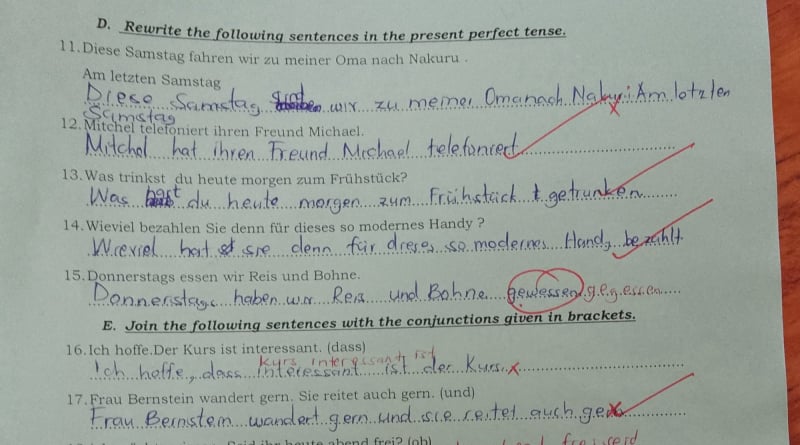 D. Rewrite the following sentences in the present perfect tense.
11. Diese Samstag fahren wir zu meiner Oma nach Nakuru .
Am letzten Samstag
Diese Samstag sind wir zu meiner Oma nach Am lotzten
Samstag
12. Mitchel telefoniert ihren Freund Michael.
Mitchel hat ihren Freund Michael telefoniert
13. Was trinkst du heute morgen zum Frühstück?
Was hast du heute morgen zum Frühstück getrunken
14. Wieviel bezahlen Sie denn für dieses so modernes Handy ?
Wieviel hat sie denn für dieses so modernes Handy bezahlt
15. Donnerstags essen wir Reis und Bohne.
Donnerstags haben wir Reis und Bohne gewessen gegessen
E. Join the following sentences with the conjunctions given in brackets.
16. Ich hoffe.Der Kurs ist interessant. (dass)
Kurs interessant ist
Ich hoffe, dass interessant ist der Kurs.
17. Frau Bernstein wandert gern. Sie reitet auch gern. (und)
Frau Bernstein wandert gern und sie reitet auch
heute abend frei? (ob)